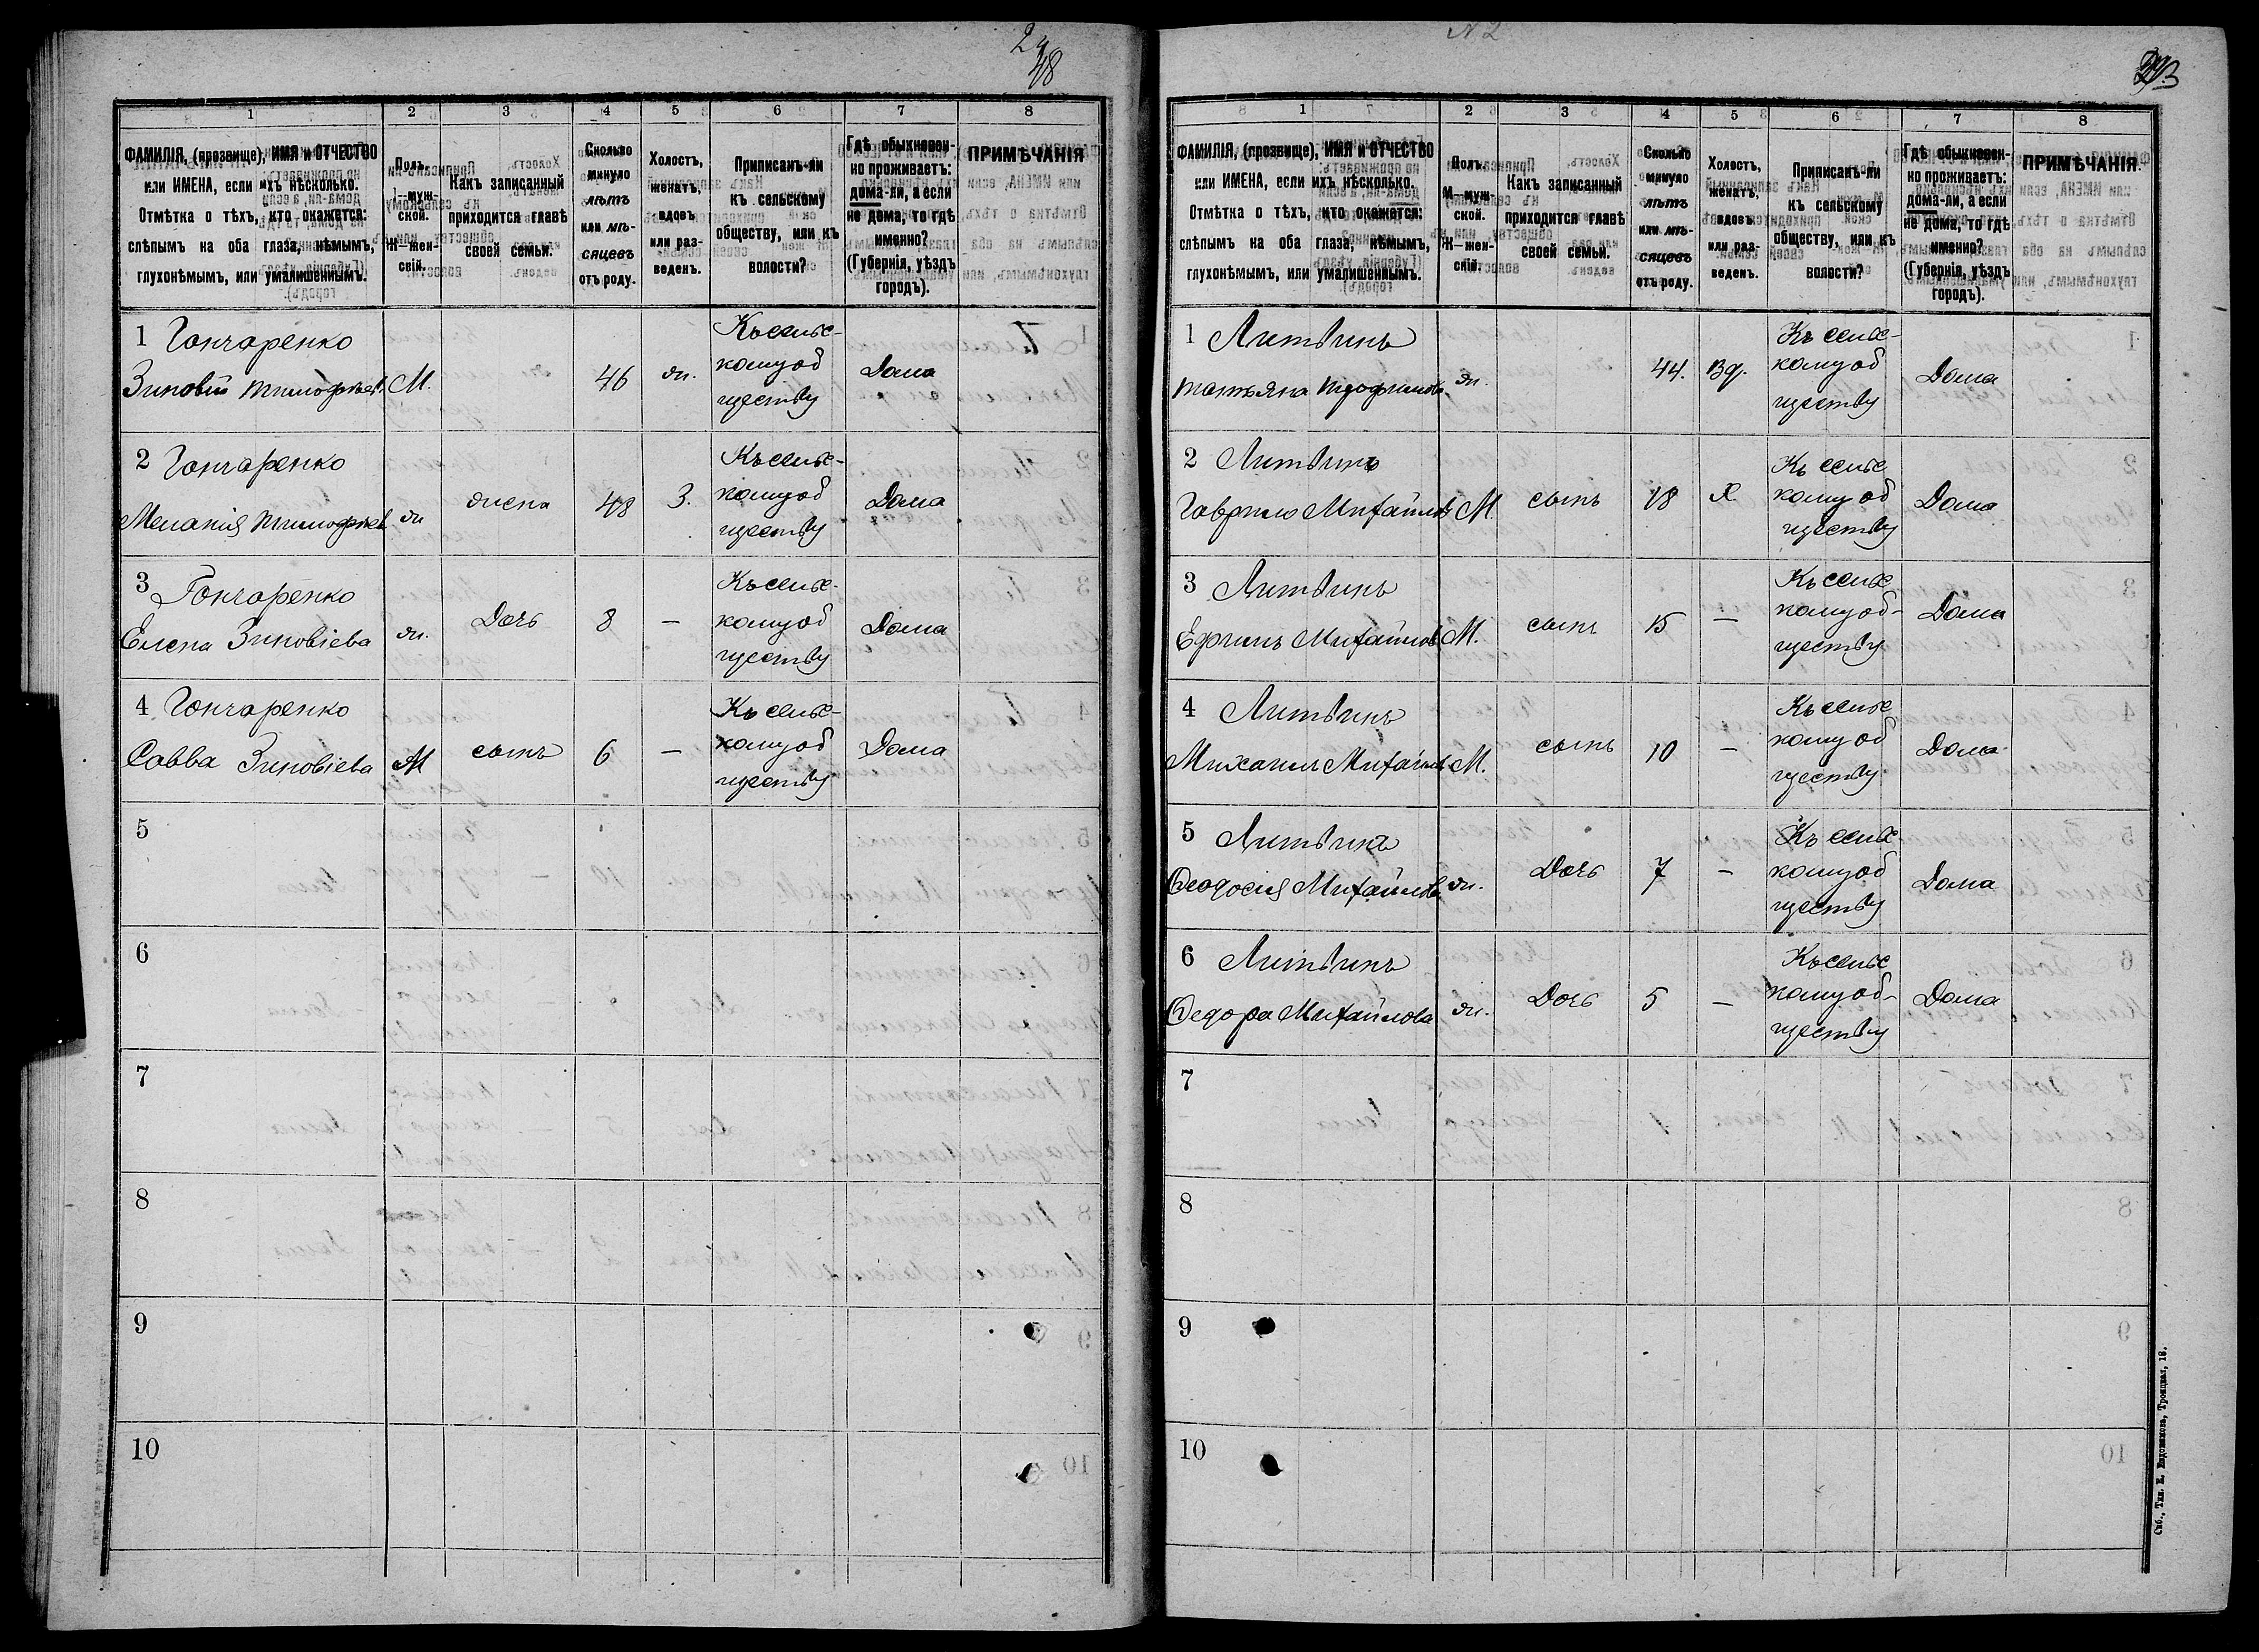 48
1 2 3 4 5 6 7 8
ФАМИЛІЯ, (прозвище), ИМЯ и ОТЧЕСТВО
или ИМЕНА, если ихъ нѣсколько.
Отмѣтка о тѣхъ, кто окажется:
слѣпымъ на оба глаза, нѣмымъ,
глухонѣмымъ, или умалишеннымъ.
Полъ.
муж-
ской.
Ж—жен-
скій.
Какъ записанный
приходится главѣ
своей семьи.
Сколько
минуло
лѣтъ
или мѣ-
сяцевъ
отъ роду.
Холостъ,
женатъ,
вдовъ
или раз-
веденъ.
Приписанъ-ли
къ сельскому
обществу, или къ
волости?
Гдѣ обыкновен-
но проживаетъ:
дома-ли, а если
не дома, то гдѣ
именно?
(Губернія, уѣздъ
городъ).
ПРИМѢЧАНІЯ
1 Гончаренко
Зиновій Тимофѣев М. 46 ж.
Къ сельс-
кому об
ществу
Дома
2 Гончаренко
Меланія Тимофѣев ж жена 48 З.
Къ сельс-
кому об
ществу
Дома
3 Гончаренко
Елена Зиновіева ж. Дочь 8 —
Къ сельс-
кому об
ществу
Дома
4 Гончаренко
Савва Зиновіева М сынъ 6 —
Къ сельс-
кому об
ществу
Дома
5
6
7
8
9
10
N 2
1 2 3 4 5 6 7 8
ФАМИЛІЯ, (прозвище), ИМЯ и ОТЧЕСТВО
или ИМЕНА, если ихъ нѣсколько.
Отмѣтка о тѣхъ, кто окажется:
слѣпымъ на оба глаза, нѣмымъ,
глухонѣмымъ, или умалишеннымъ.
Полъ.
М—муж-
ской.
Ж—жен-
скій.
Какъ записанный
приходится главѣ
своей семьи.
Сколько
минуло
лѣтъ
или мѣ-
сяцевъ
отъ роду.
Холостъ,
женатъ,
вдовъ
или раз-
веденъ.
Приписанъ-ли
къ сельскому
обществу, или къ
волости?
Гдѣ обыкновен-
но проживаетъ:
дома-ли, а если
не дома, то гдѣ
именно?
(Губернія, уѣздъ
городъ).
ПРИМѢЧАНІЯ.
1 Литвинъ
Татьяна Трофимова ж. 44. Вд.
Къ сельс-
кому об
ществу
Дома
2 Литвинъ
Гаврило Михайлов М. сынъ 18 Х.
Къ сельс
кому об
ществу
Дома
3 Литвинъ
Ефимъ Михайлов М. сынъ 15 —
Къ сельс
кому об-
ществу
Дома
4 Литвинъ
Михаилъ Михайлов М. сынъ 10 —
Къ сельс
кому об
ществу
Дома
5 Литвинъ
Ѳеодосія Михайлова ж. Дочь 7 —
Къ сельс
кому об
ществу
Дома
6 Литвинъ
Ѳедора Михайлова ж. Дочь 5 —
Къ сельс
кому об-
ществу
Дома
7
8
9
10
Спб., Тип. Е. Евдокимова, Троицкая, 18.